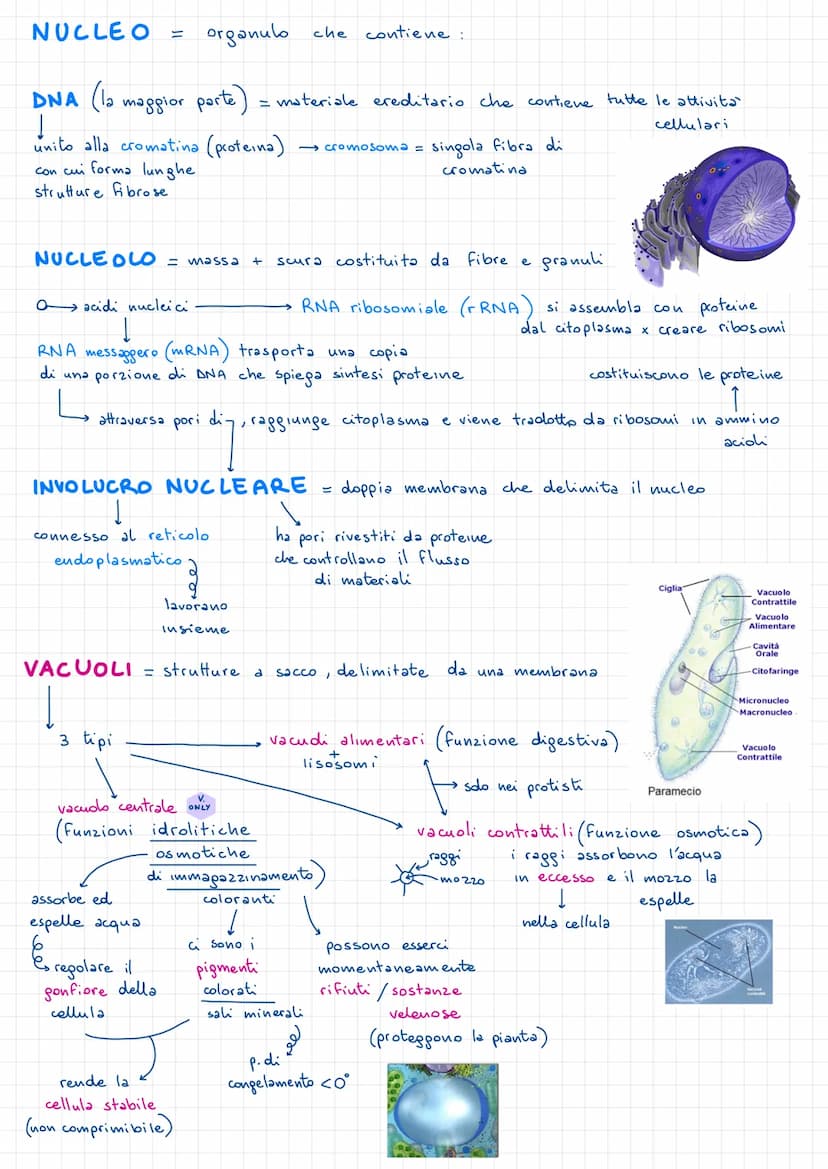 NUCLEO = organulo che contiene :
DNA (la maggior parte) = materiale ereditario che contiene tutte le attività
cellulari
unito alla cromatina (proteina) → cromosoma = singola fibra di
cromatina
con cui forma lunghe
strutture fibrose
NUCLEOLO = massa + scura costituita da fibre e granuli
→ acidi nucleici → RNA ribosomiale (rRNA) si assembla con proteine
dal citoplasma x creare ribosomi
RNA messaggero (mRNA) trasporta una copia
di una porzione di DNA che spiega sintesi proteine
costituiscono le proteine
→ attraversa pori di , raggiunge citoplasma e viene tradotto da ribosomi in ammino
acidi
INVOLUCRO NUCLEARE = doppia membrana che delimita il nucleo
connesso al reticolo
endoplasmatico
ha pori rivestiti da proteine
che controllano il flusso
di materiali
lavorano
insieme
Ciglia
Vacuolo
Contrattile
Vacuolo
Alimentare
Cavità
Orale
Citofaringe
Micronucleo
Macronucleo
Vacuolo
Contrattile
Paramecio
VACUOLI = strutture a sacco, delimitate da una membrana
3 tipi
vacuoli alimentari (funzione digestiva)
+
lisosomi
→ solo nei protisti
vacuolo centrale V. ONLY
(funzioni idrolitiche
osmotiche
di immagazzinamento)
coloranti
vacuoli contrattili (funzione osmotica)
raggi
mozzo
i raggi assorbono l'acqua
in eccesso e il mozzo la
espelle
nella cellula
assorbe ed
espelle acqua
regolare il
gonfiore della
cellula
ci sono i
pigmenti
colorati
sali minerali
possono esserci
momentaneamente
rifiuti / sostanze
velenose
(proteggono la pianta)
p. di
congelamento <0°
rende la
cellula stabile
(non comprimibile)